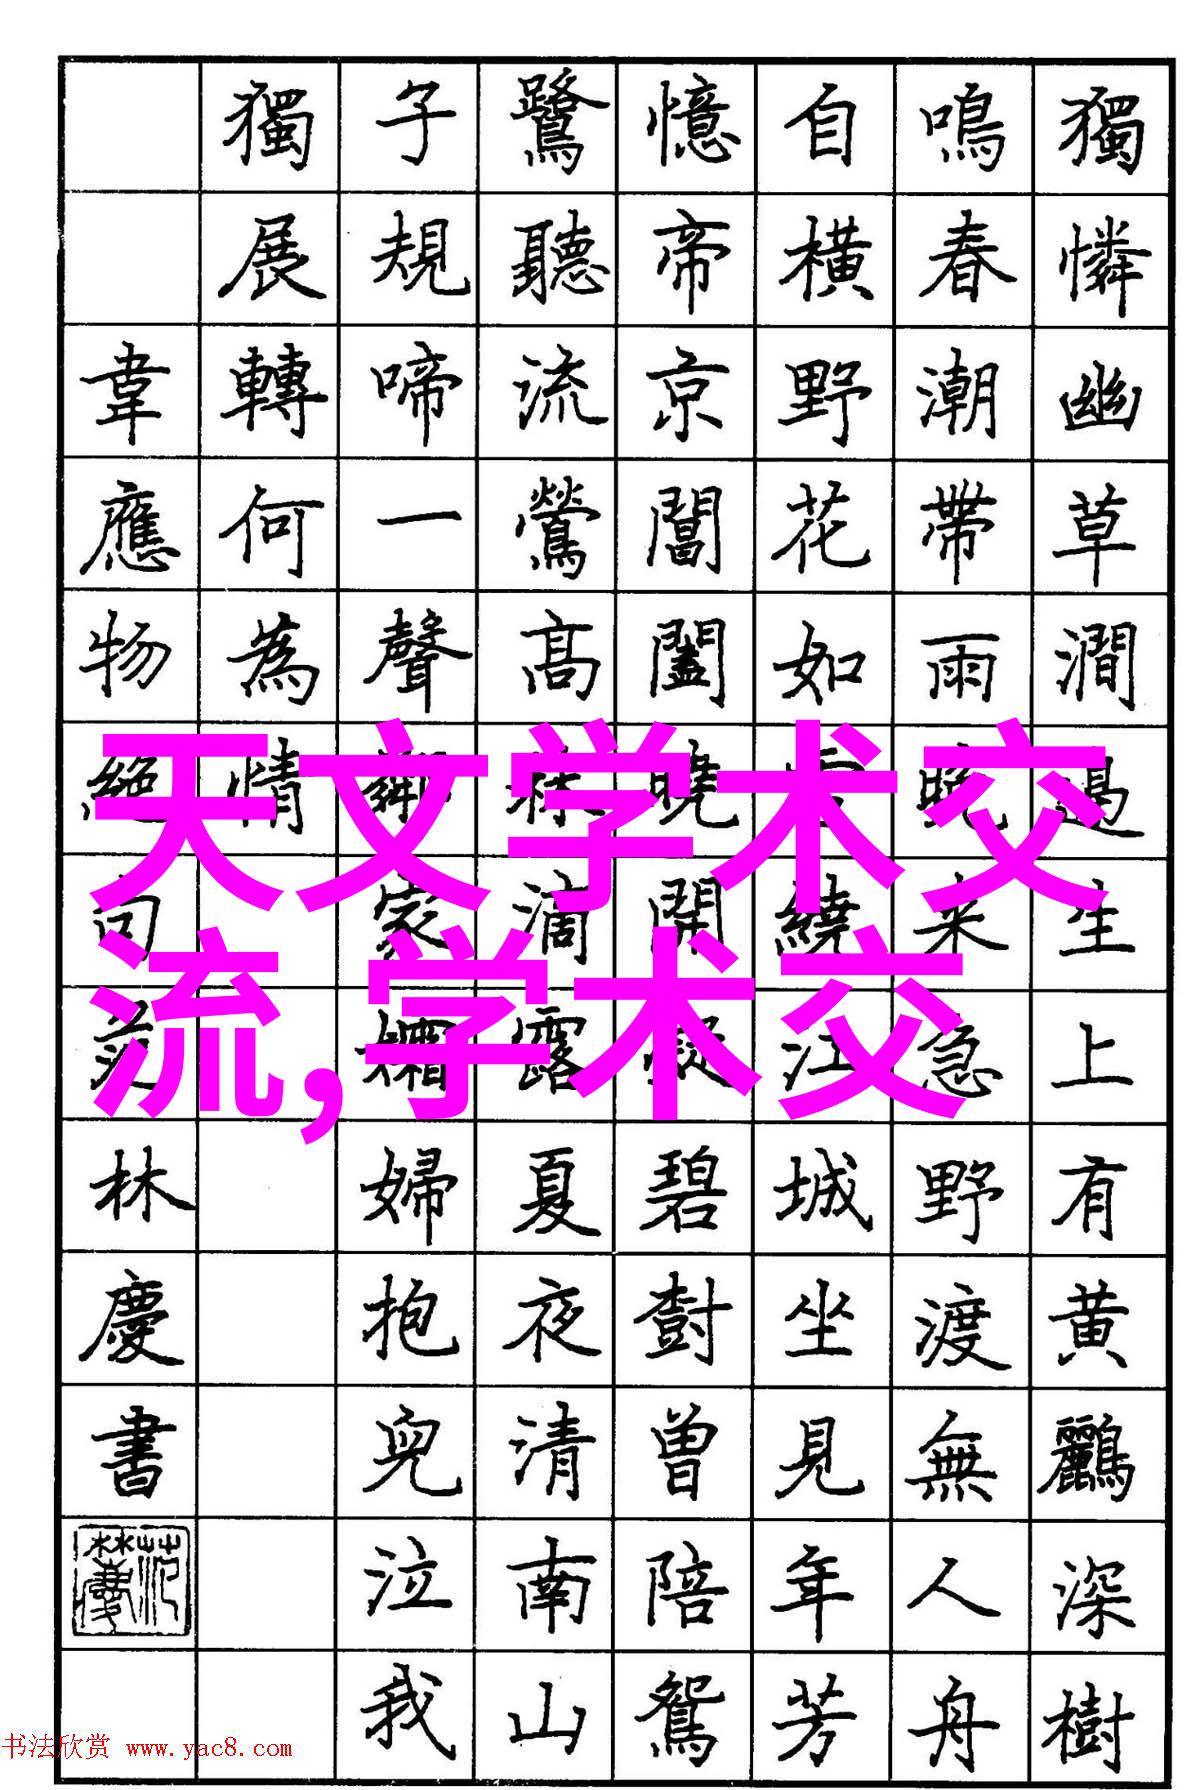 獨憐幽草澗邊生上有黄鸝深樹
鳴春潮帶雨晚来急野渡無人舟
自横野花如雪繞江城坐見年芳
憶帝京閶闔曉開凝碧樹曾陪鴛
鷺聽流鶯高林滴露夏夜清南山
子規啼一聲鄰家孀婦抱兒泣我
獨展轉何為情
韋應物絕句范林慶書
天文学术交
流,学术交
书法欣赏 www.yac8.com